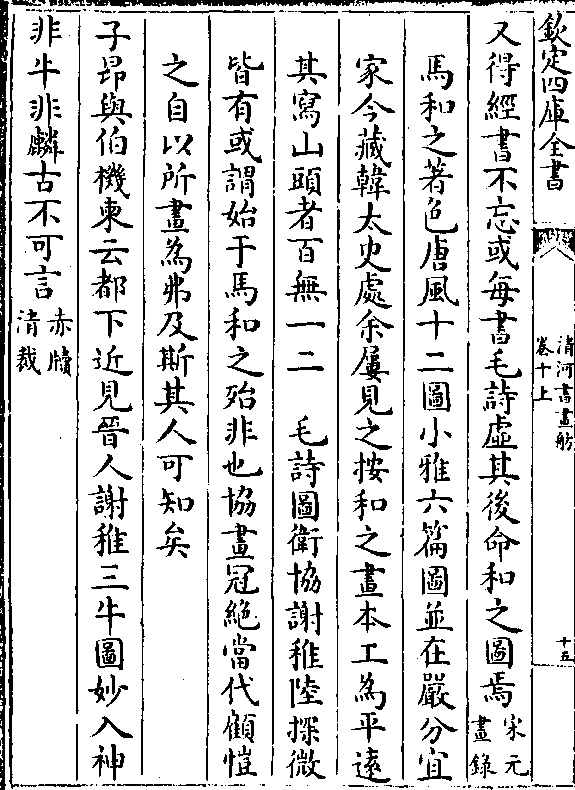 欽定四庫全書
清河書畫舫
卷十上
十五
又得經書不忘或每書毛詩虛其後命和之圖焉宋元
畫錄
馬和之著色唐風十二圖小雅六篇圖並在嚴分宜
家今藏韓太史處余屢見之按和之畫本工為平遠
其寫山頭者百無一二　毛詩圖衛協謝稚陸探微
皆有或謂始于馬和之殆非也協畫冠絶當代顧愷
之自以所畫為弗及斯其人可知矣
子昂與伯機柬云都下近見晉人謝稚三牛圖妙入神
非牛非麟古不可言赤牘
清裁